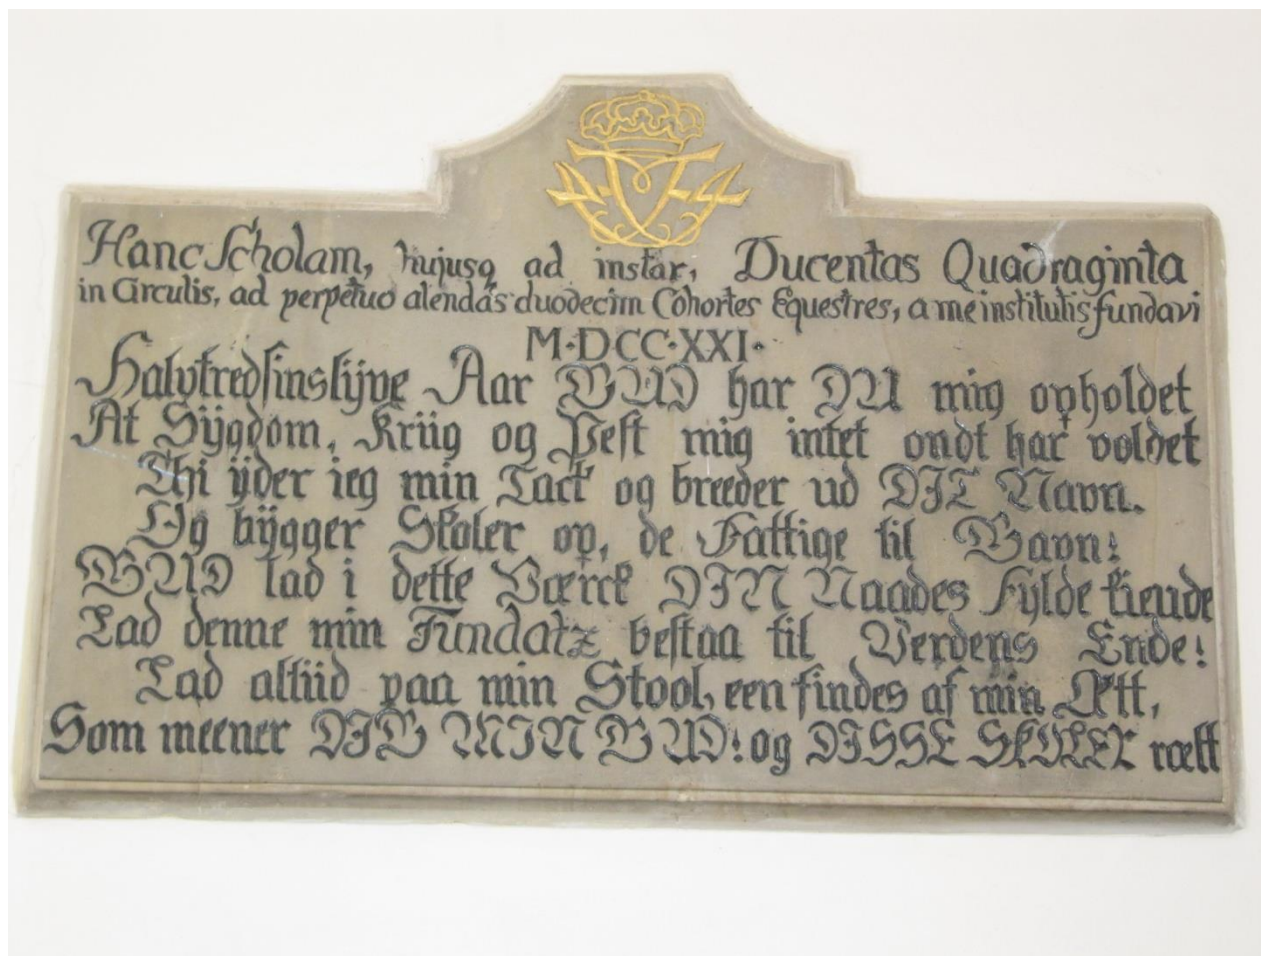 Hanc Scholam, hujusq ad instar, Ducentas Quadraginta
in Circulis, ad perpetuo alendas duodecim Cohortes Equestres, a me institutis fundavi
M·DCC·XXI·
Halvtredsinstÿve Aar GUD har DU mig opholdet
At Sÿgdom, Kriig og Pest mig intet ondt har voldet
Thi ÿder ieg min Tack og breeder ud DIT Navn.
Og bÿgger Skoler op, de Fattige til Gavn!
GUD lad i dette Værck DIN Naades Fylde kiende
Lad denne min Fundatz bestaa til Verdens Ende!
Lad altiid paa min Stool, een findes af min Ætt,
Som meener DIG MIN GUD! og DISSE SKOLER rætt